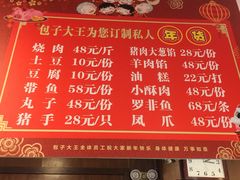 包子大王为您订制私人 年货
烧肉 48元/斤 猪肉大葱馅 28元/份
土豆 10元/份 羊肉馅 48元/份
豆腐 10元/份 油糕 22元/打
带鱼 58元/份 小酥肉 48元/份
丸子 48元/份 罗非鱼 68元/条
猪手 28元/只 凤爪 48元/份
包子大王全体员工祝大家新年快乐 身体健康 万事如意